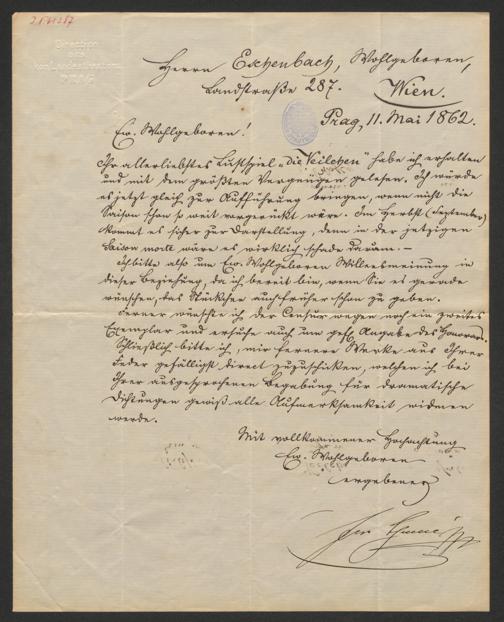 Direction
PRAG
Herrn Eschenbach, Wohlgeboren,
Landstraße 287. Wien.
Prag, 11. Mai 1862.
Ew. Wohlgeboren!
Ihr allerliebstes Lustspiel „die Veilchen" habe ich erhalten
und mit dem größten Vergnügen gelesen. Ich würde
es jetzt gleich zur Aufführung bringen, wenn nicht die
Saison schon so weit vorgerückt wäre. Im Herbst (September)
kommt es sicher zur Darstellung, denn in der jetzigen
Saison morte wäre es wirklich schade darum. –
Ich bitte also um Ew. Wohlgeboren Willensmeinung in
dieser Beziehung, da ich bereit bin, wenn Sie es gerade
wünschen, das Stückchen auch früher schon zu geben.
Ferner wünschte ich der Censur wegen noch ein zweites
Exemplar und ersuche auch um gefl. Angabe des Honorars.
Schließlich bitte ich, mir fernere Werke aus Ihrer
Feder gefälligst direct zuzuschicken, welchen ich bei
Ihrer ausgesprochenen Begabung für dramatische
Dichtungen gewiß alle Aufmerksamkeit widmen
werde.
Mit vollkommener Hochachtung
Ew. Wohlgeboren
ergebener